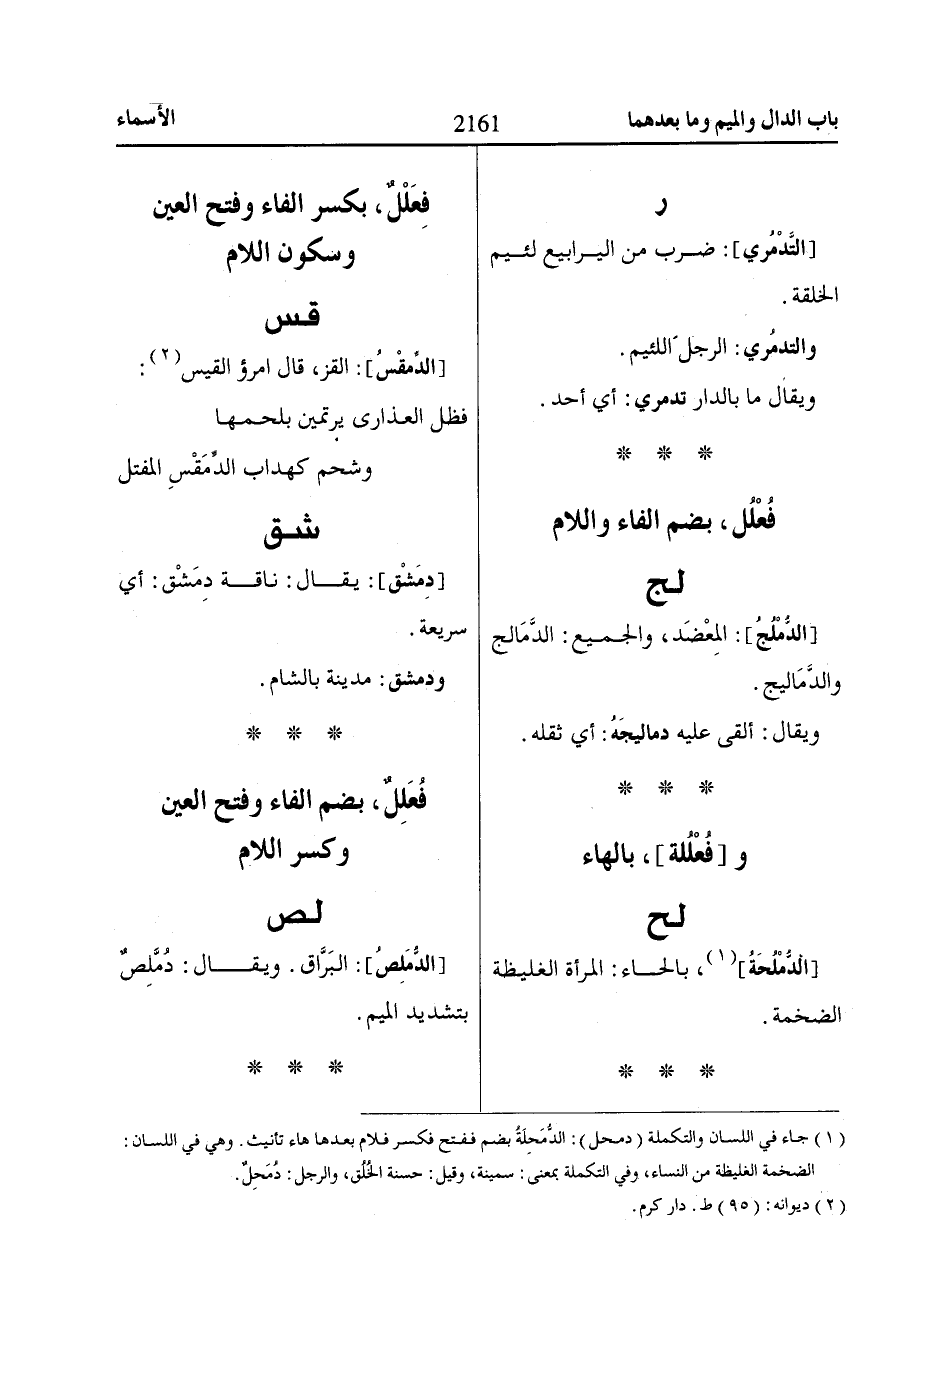 باب الدال والميم وما بعدهما
2161
الأسماء
ر
[التَّدْمُري]: ضرب من اليرابيع لئيم
الخلقة.
والتدمُري: الرجل اللئيم.
ويقال ما بالدار تدمري: أي أحد.
* * *
فُعْلُل، بضم الفاء واللام
لج
[الدُّمْلُجُ]: المِعْضَد، والجميع: الدَّمَالج
والدَّمَاليج.
ويقال: ألقى عليه دماليجَهُ: أي ثقله.
* * *
و [فُعْلُلة]، بالهاء
لح
[الدُّمْلُحَةُ](١)، بالحاء: المرأة الغليظة
الضخمة.
* * *
فِعَلْلٌ، بكسر الفاء وفتح العين
وسكون اللام
قس
[الدِّمَقْسُ]: القز، قال امرؤ القيس(٢):
فظل العذارى يرتمين بلحمها
وشحم كهداب الدِّمَقْسِ المفتل
شق
[دِمَشْق]: يقال: ناقة دِمَشْق: أي
سريعة.
ودمشق: مدينة بالشام.
* * *
فُعَلِلٌ، بضم الفاء وفتح العين
وكسر اللام
لص
[الدُّمَلِصُ]: البَرَّاق. ويقال: دُمَّلِصٌ
بتشديد الميم.
* * *
(١) جاء في اللسان والتكملة (دمحل): الدُّمَحِلَةُ بضم ففتح فكسر فلام بعدها هاء تأنيث. وهي في اللسان:
الضخمة الغليظة من النساء، وفي التكملة بمعنى: سمينة، وقيل: حسنة الخُلُق، والرجل: دُمَحِلٌ.
(٢) ديوانه: (٩٥) ط. دار كرم.